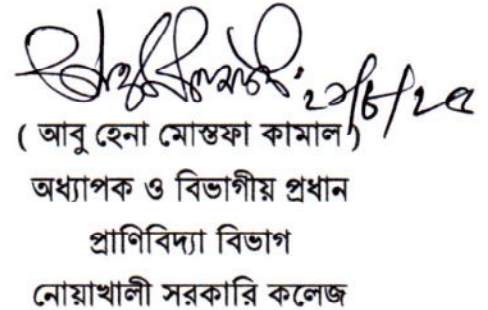 ( আবু হেনা মোস্তফা কামাল )
অধ্যাপক ও বিভাগীয় প্রধান
প্রাণিবিদ্যা বিভাগ
নোয়াখালী সরকারি কলেজ